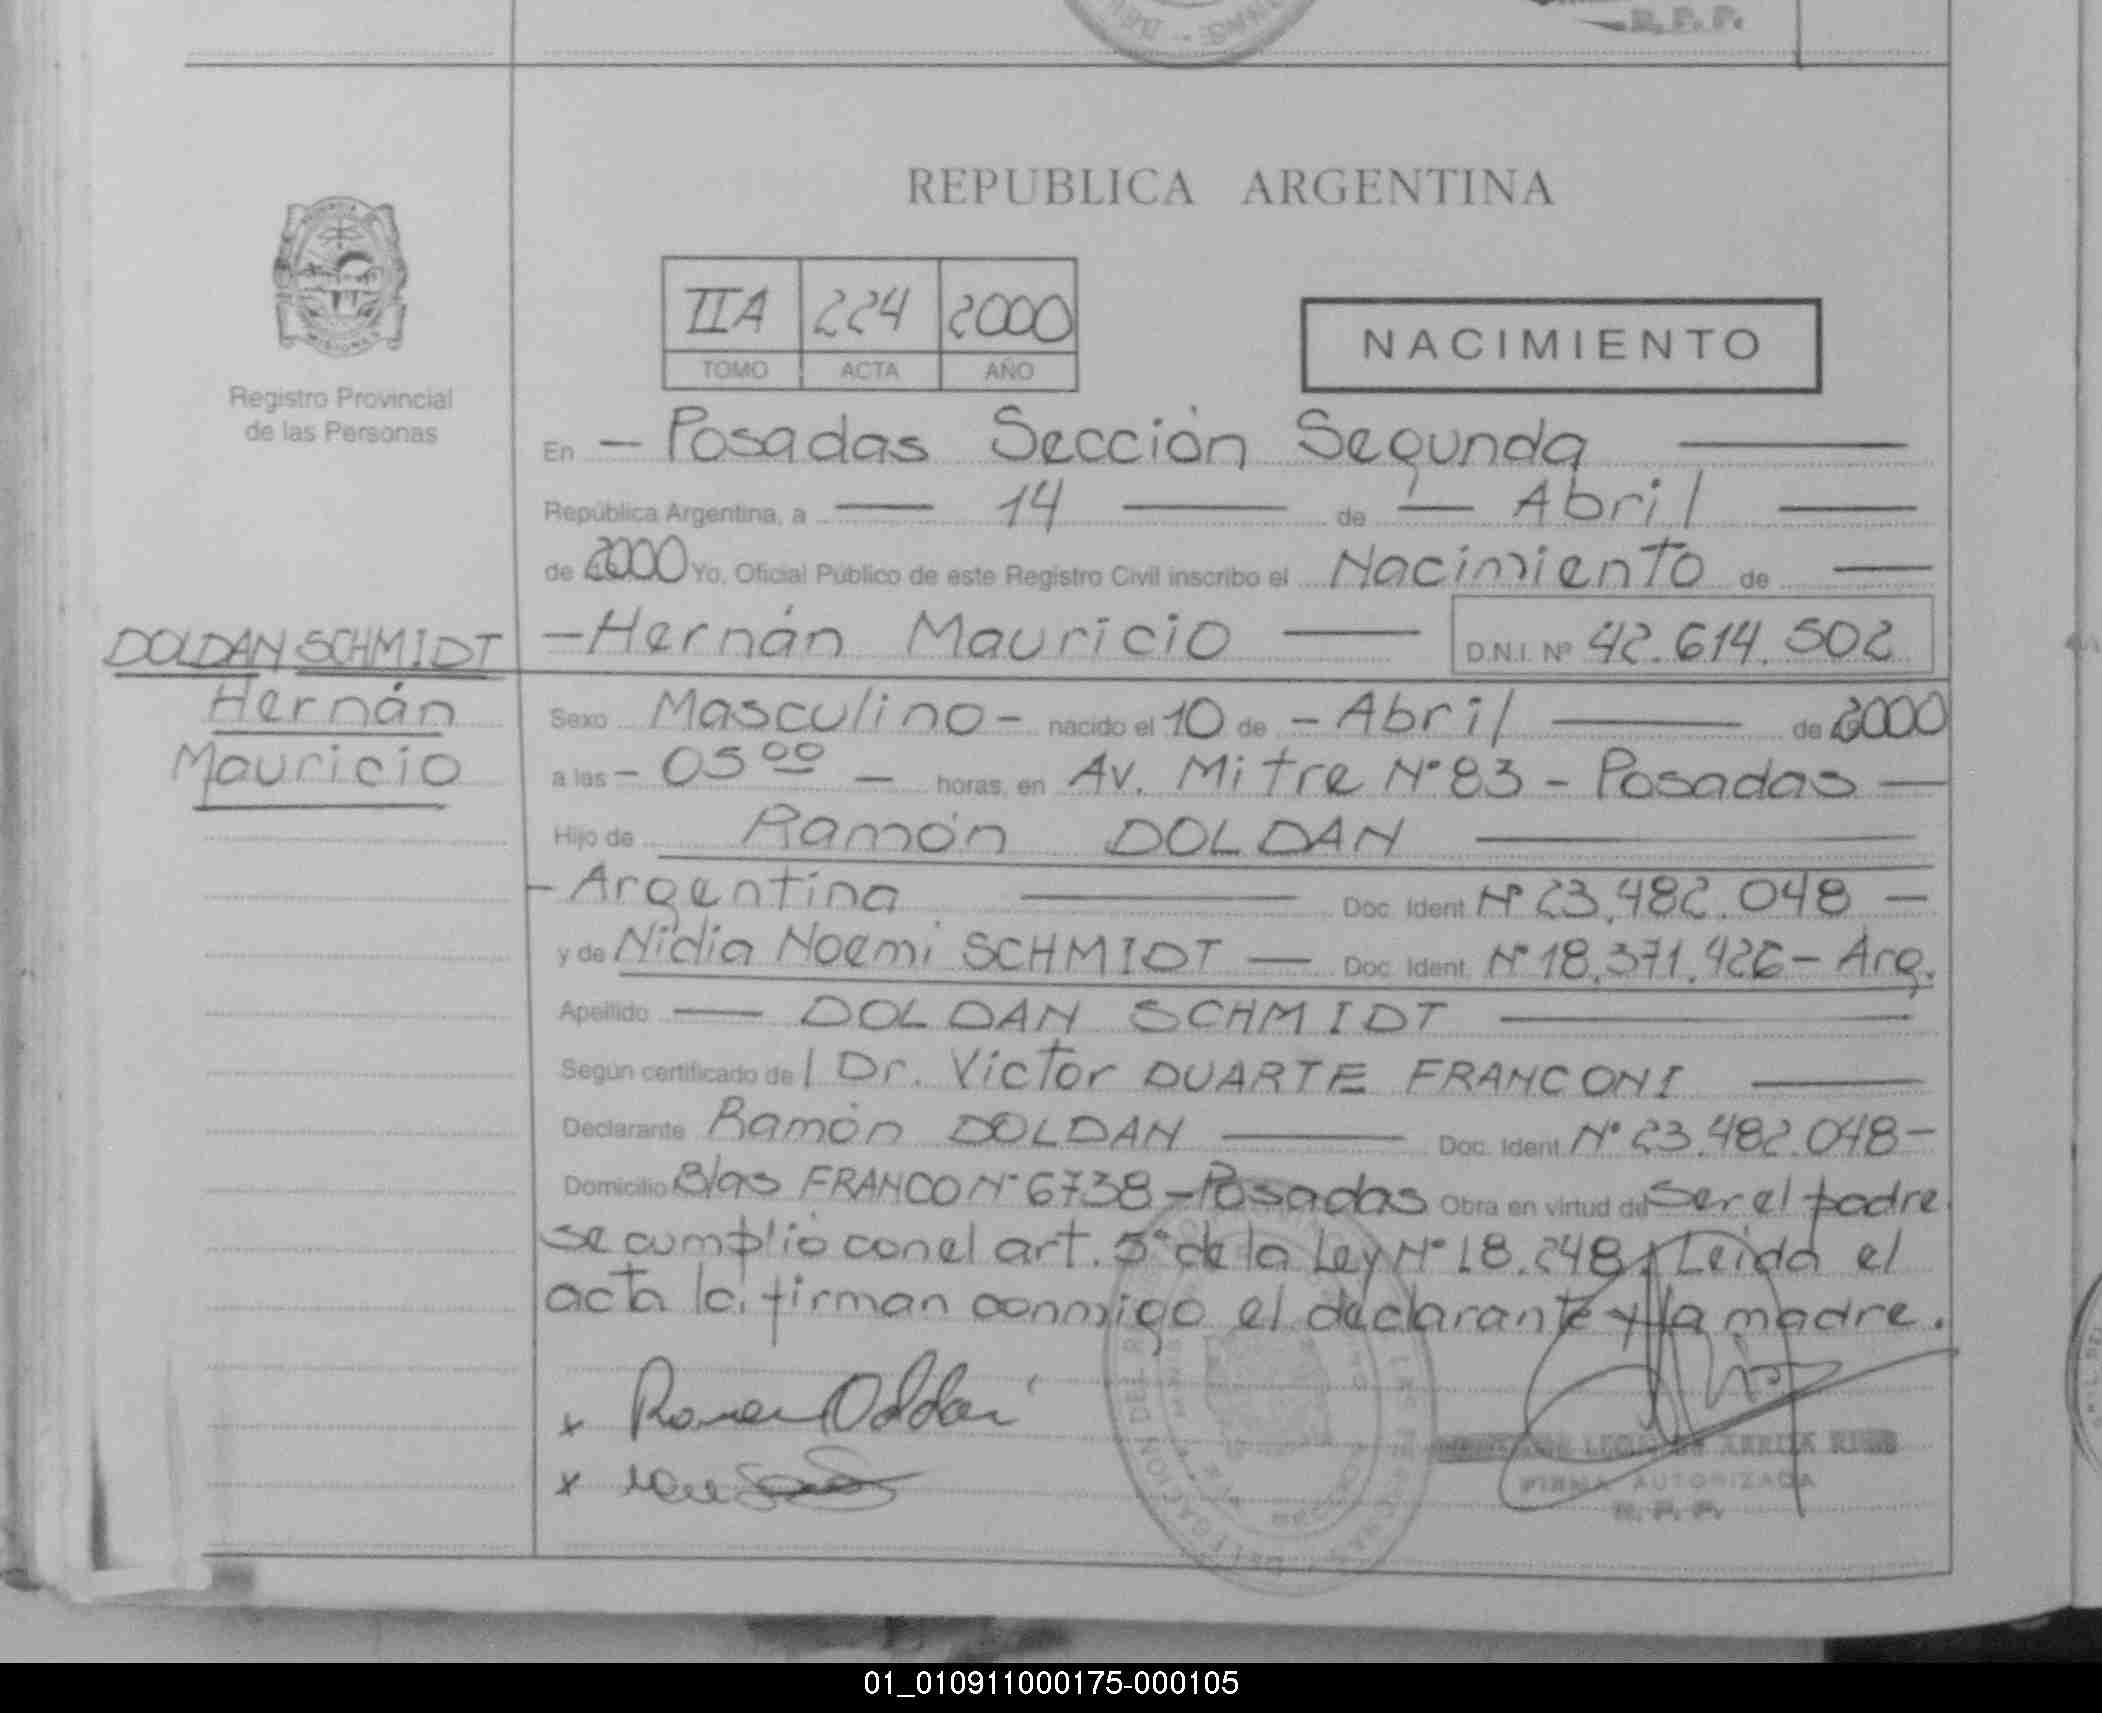 R. P. P.
REPUBLICA ARGENTINA
IIA 224 2000
TOMO ACTA AÑO
NACIMIENTO
Registro Provincial
de las Personas
En — Posadas Sección Segunda —
República Argentina, a — 14 — de — Abril —
de 2000 Yo, Oficial Público de este Registro Civil inscribo el Nacimiento de —
— Hernán Mauricio — D.N.I. Nº 42.614.502
DOLDAN SCHMIDT
Hernán
Mauricio
Sexo Masculino - nacido el 10 de - Abril — de 2000
a las - 05 00 - horas, en Av. Mitre Nº 83 - Posadas —
Hijo de Ramón DOLDAN —
- Argentina — Doc. Ident. Nº 23.482.048 —
y de Nidia Noemi SCHMIDT — Doc. Ident. Nº 18.371.426 - Arg.
Apellido — DOLDAN SCHMIDT —
Según certificado de l Dr. Victor DUARTE FRANCONI —
Declarante Ramón DOLDAN — Doc. Ident. Nº 23.482.048 -
Domicilio Blas FRANCO Nº 6738 - Posadas Obra en virtud de Ser el padre.
se cumplió con el art. 5º de la Ley Nº 18.248. Leida el
acta la firman conmigo el declarante y la madre.
x Ramon Doldan
x
FIRMA AUTORIZADA
R. P. P.
01_010911000175-000105